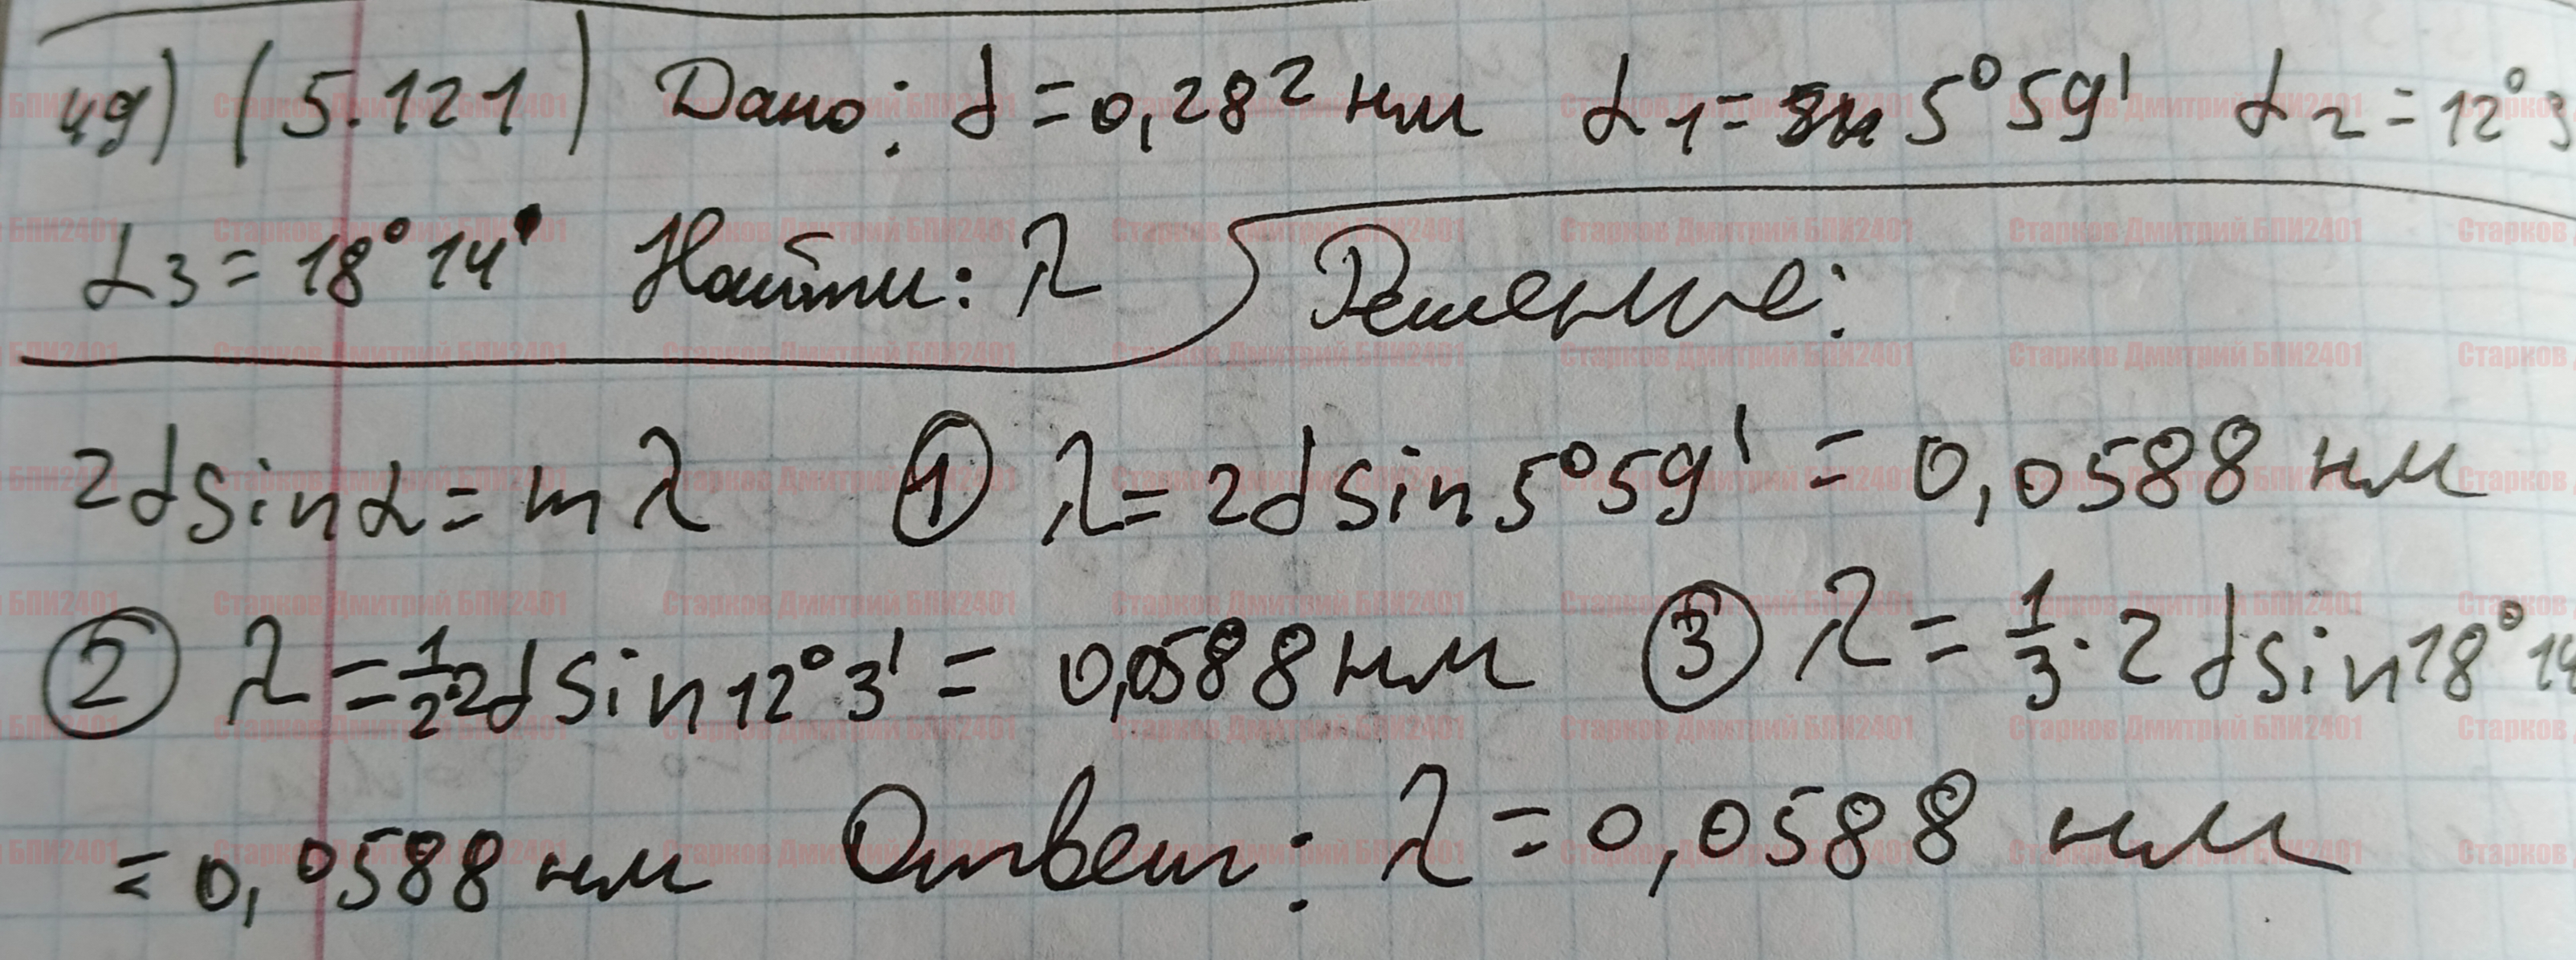 49) (5.121) Дано: d = 0,282 нм α1 = 5°59' α2 = 12°3
α3 = 18°14' Найти: λ Решение:
2dsinα = mλ ① λ = 2dsin5°59' = 0,0588 нм
② λ = 1/2·2dsin12°3' = 0,0588 нм ③ λ = 1/3·2dsin18°14
= 0,0588 нм Ответ: λ = 0,0588 нм
Старков Дмитрий БПИ2401